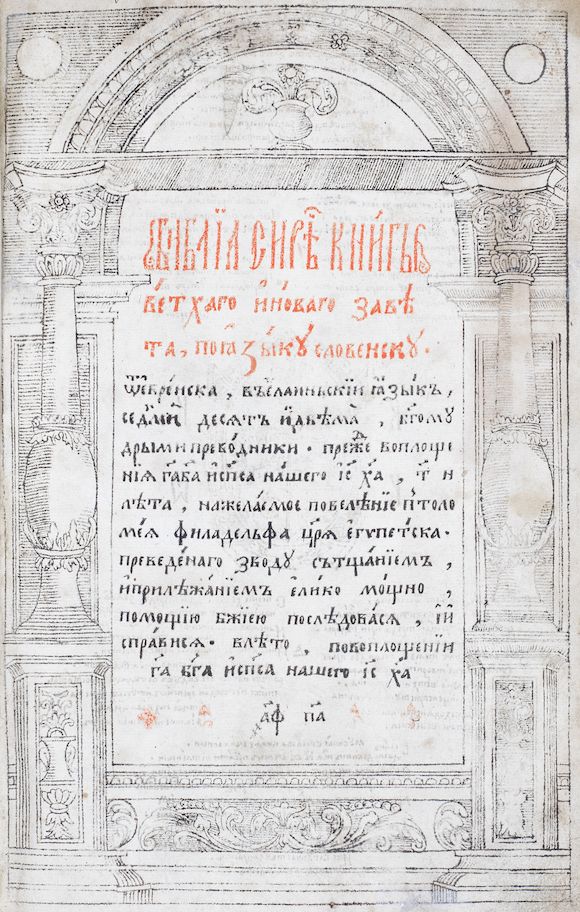 Библіа сирѣ҃ книгы
ве́тхаго и҆ но́ваго завѣ́
та, поꙗ҆зы́ку словенску.
Ѿе҆вре́нска, въе҆лли́ньскїи ꙗ҆зы́къ,
седмїи десѧтъ и҆двѣма̀, бг҃ому
дрыми прево́дники. пре́жде воплоще
нїѧ гд҃а бг҃а и҆сп҃са на́шего і҆с х҃а, т҃ и
лѣ́та, нажела́емое повелѣ́нїе пъ҆толо
меѧ филаде́льфа цр҃ѧ е҆гѵ́петска.
преведе́наго зво́ду сътща́нїемъ,
и҆прилѣжа́нїемъ е҆лико мощно,
помощїю бж҃їею послѣ́довасѧ, и҆
спра́висѧ. влѣ́то, повоплоще́нїи
гд҃а бг҃а и҆сп҃са нашего і҆с х҃а
҂аф п҃а